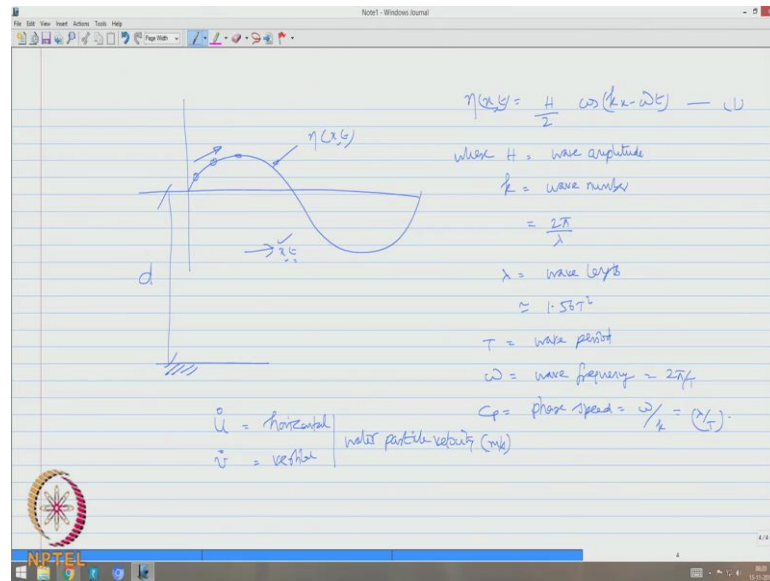 Note1 - Windows Journal
File Edit View Insert Actions Tools Help
Page Width
η(x,t) = H/2 cos(kx-ωt) — (1)
η(x,t)
where H = wave amplitude
k = wave number
= 2π/λ
→ x,t
d
λ = wave length
≃ 1.56T²
T = wave period
ω = wave frequency = 2π/T
Cp = phase speed = ω/k = (λ/T).
u̇ = horizontal
v̇ = vertical
water particle velocity (m/s)
NPTEL
4/4
4